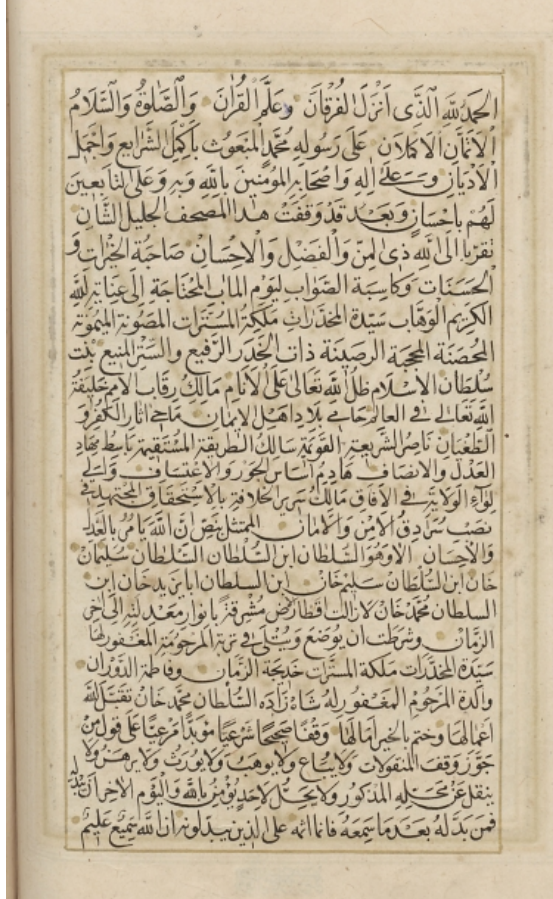 الحمد لله الذى انزل الفرقان وعلم القران والصلوة والسلام
الاتمان الاكملان على رسوله محمد المبعوث باكمل الشرايع واجمل
الاديان وعلى اله واصحابه المؤمنين بالله وبه وعلى التابعين
لهم باحسان وبعد قد وقفت هذا المصحف الجليل الشان
تقربا الى الله ذى المن والفضل والاحسان صاحبة الخيرات و
الحسنات وكاسبة الصواب ليوم الماب المحتاجة الى عناية الله
الكريم الوهاب سيدة المخدرات ملكة المسترات المصونة الميمونة
المحصنة المحجبة الرصينة ذات الخدر الرفيع والستر المنيع بنت
سلطان الاسلام ظل الله تعالى على الانام مالك رقاب الامم خليفة
الله تعالى فى العالم حامى بلاد اهل الايمان ماحى اثار الكفر و
الطغيان ناصر الشريعة القويمة سالك الطريقة المستقيمة باسط مهاد
العدل والانصاف هادم اساس الجور والاعتساف والى
لواء الولاية فى الافاق مالك سرير الخلافة بالاستحقاق المجتهد فى
نصب سرادق الامن والامان الممتثل بنص ان الله يامر بالعدل
والاحسان الا وهو السلطان ابن السلطان السلطان سليمان
خان ابن السلطان سليم خان ابن السلطان بايزيد خان ابن
السلطان محمد خان لا زالت اقطار الارض مشرقة بانوار معدلته الى اخر
الزمان وشرطت ان يوضع ويتلى فى تربة المرحومة المغفور لها
سيدة المخدرات ملكة المسترات خديجة الزمان وفاطمة الدوران
والدة المرحوم المغفور له شاهزاده السلطان محمد خان تقبل الله
اعمالها وختم بالخير امالها وقفا صحيحا شرعيا مؤبدا مرعيا على قول من
جوز وقف المنقولات ولا يباع ولا يوهب ولا يورث ولا يرهن ولا
ينقل عن محله المذكور ولا يحل لاحد يؤمن بالله واليوم الاخر ان يبدله
فمن بدله بعد ما سمعه فانما اثمه على الذين يبدلونه ان الله سميع عليم